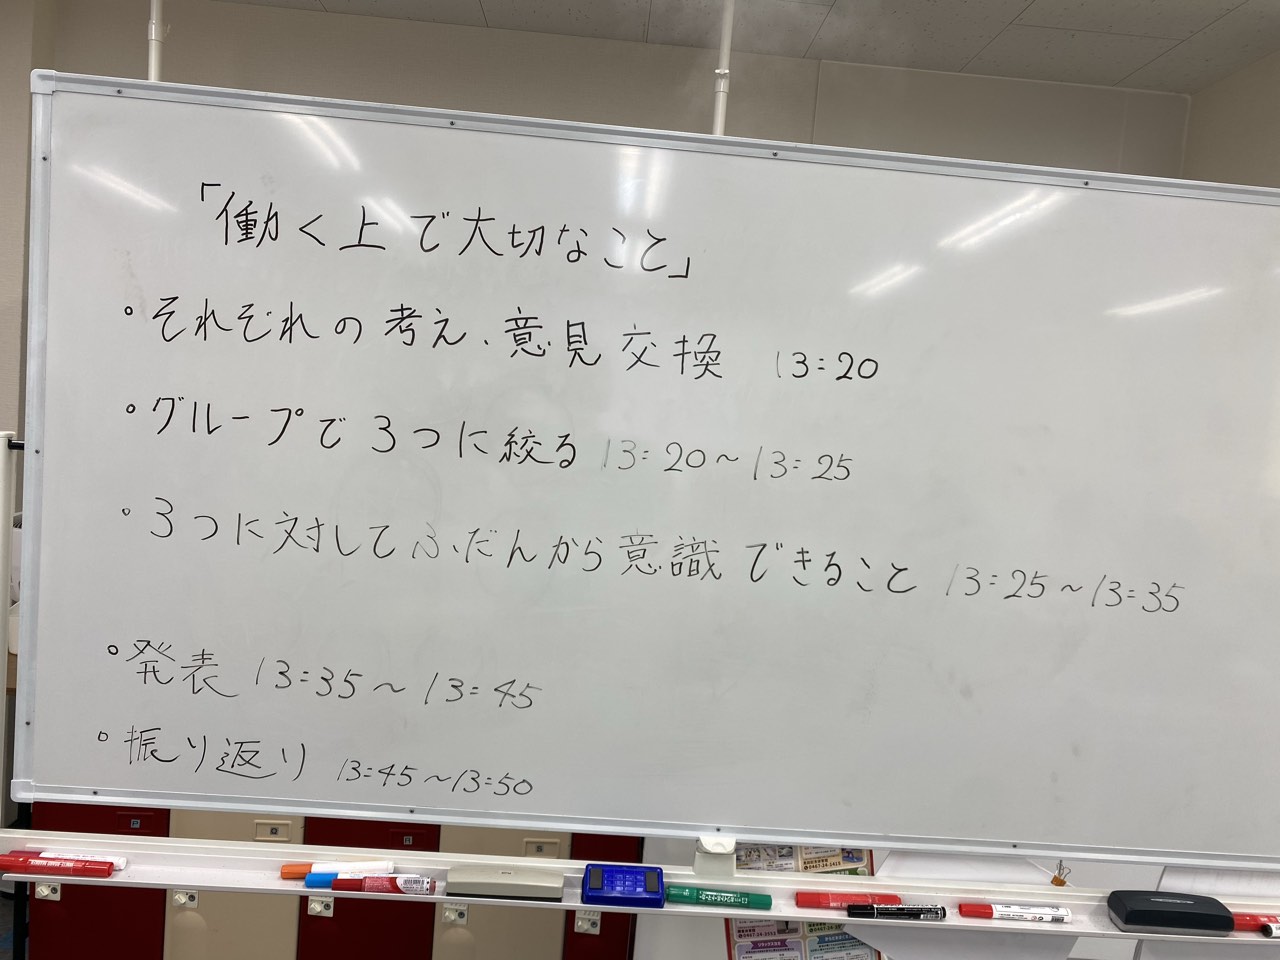 「働く上で大切なこと」
・それぞれの考え、意見交換 13:20
・グループで3つに絞る 13:20～13:25
・3つに対してふだんから意識できること 13:25～13:35
・発表 13:35～13:45
・振り返り 13:45～13:50